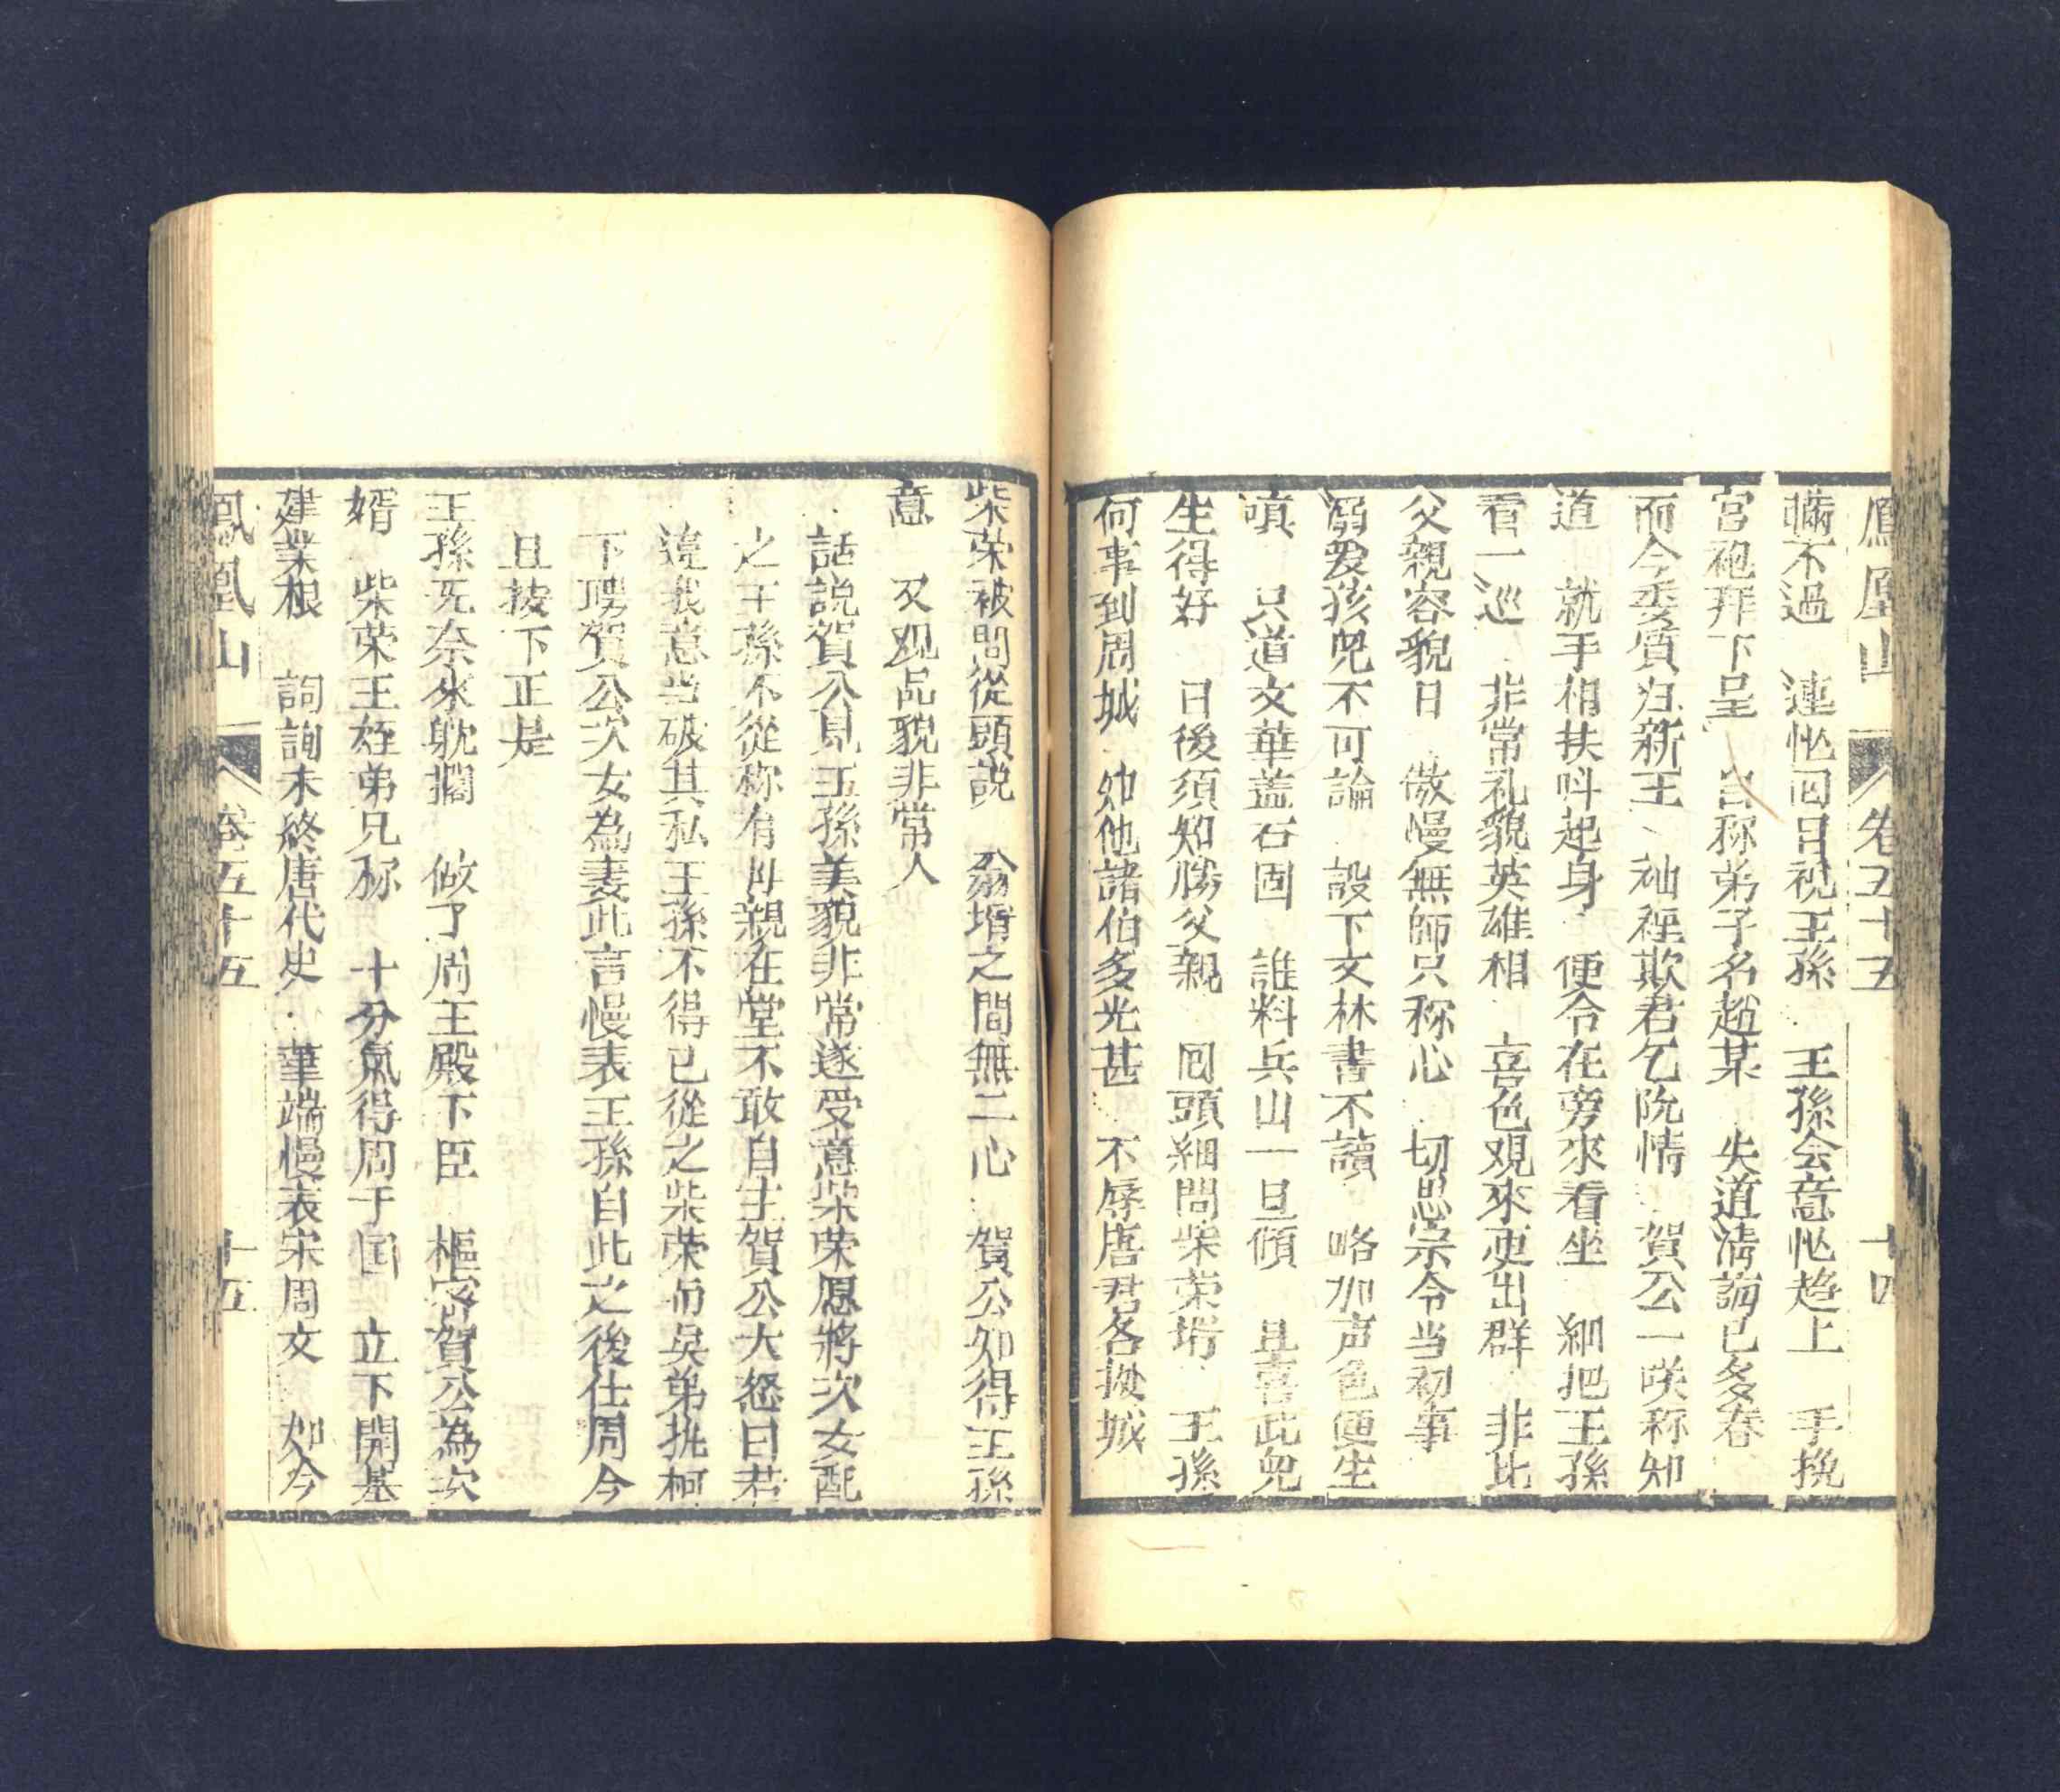 鳳凰山 卷五十五 十四
瞞不過 連忙回目視王孫 王孫会意忙趋上 手挽
宮袍拜下呈 自称弟子名趙某 失道淸詢已多春
而今委質归新王 袖裡欺君乞阮情 賀公一咲称知
道 就手相扶呌起身 便令在旁來看坐 細把王孫
看一巡 非常礼貌英雄相 喜色观來更出群 非比
父親容貌日 傲慢無師只称心 切思宗令当初事
溺爱孩兒不可論 設下文林書不讀 略加声色便生
嗔 只道文華盖石固 誰料兵山一旦傾 且喜此兒
生得好 日後須知勝父親 回頭細問柴荣壻 王孫
何事到周城 如他諸伯多光甚 不辱唐君各拨城
柴荣被問從頭說 翁壻之間無二心 賀公知得王孫
意 又观品貌非常人
話說賀公見王孫美貌非常遂受意柴荣愿將次女配
之王孫不從称有母親在堂不敢自主賀公大怒曰若
違我意当破其私王孫不得已從之柴荣而吳弟执柯
下聘賀公次女為妻此言慢表王孫自此之後仕周今
且按下正是
王孫无奈來躭擱 做了周王殿下臣 樞密賀公為次
婿 柴荣王姪弟兄称 十分氣得周于囯 立下開基
建業根 詞詢未終唐代史 筆端慢表宋周文 如今
鳳凰山 卷五十五 十五